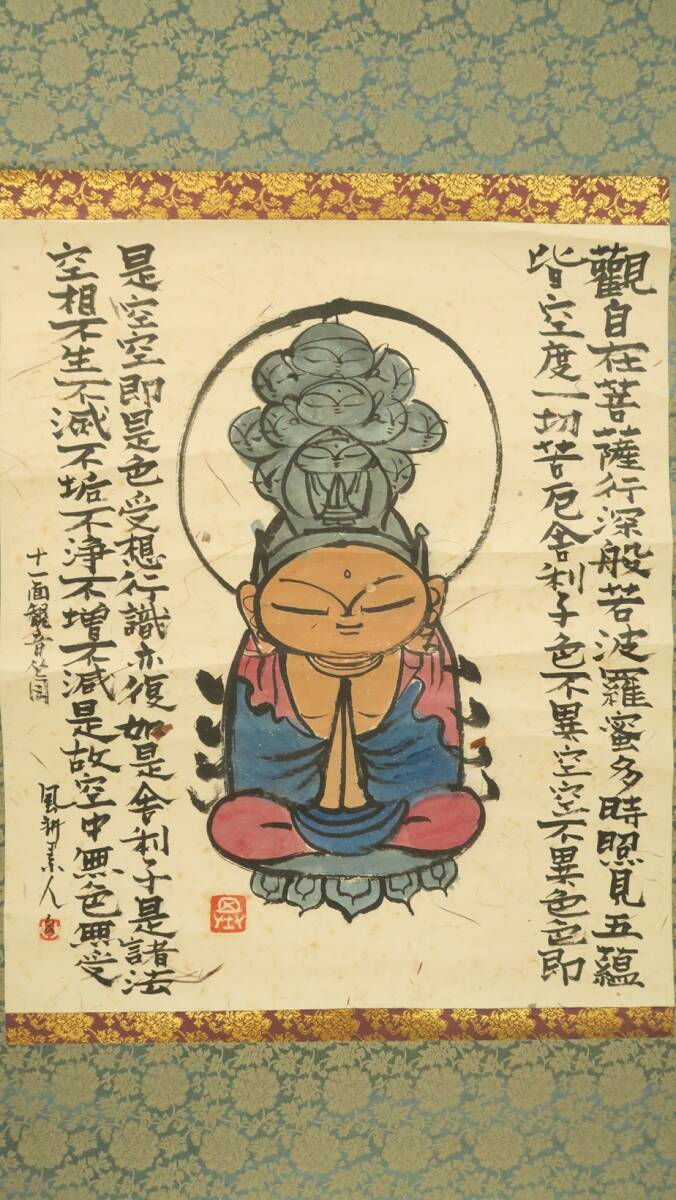 觀自在菩薩行深般若波羅蜜多時照見五蘊
皆空度一切苦厄舎利子色不異空空不異色色即
是空空即是色受想行識亦復如是舎利子是諸法
空相不生不滅不垢不浄不増不減是故空中無色無受
十一面観音
風耕素人